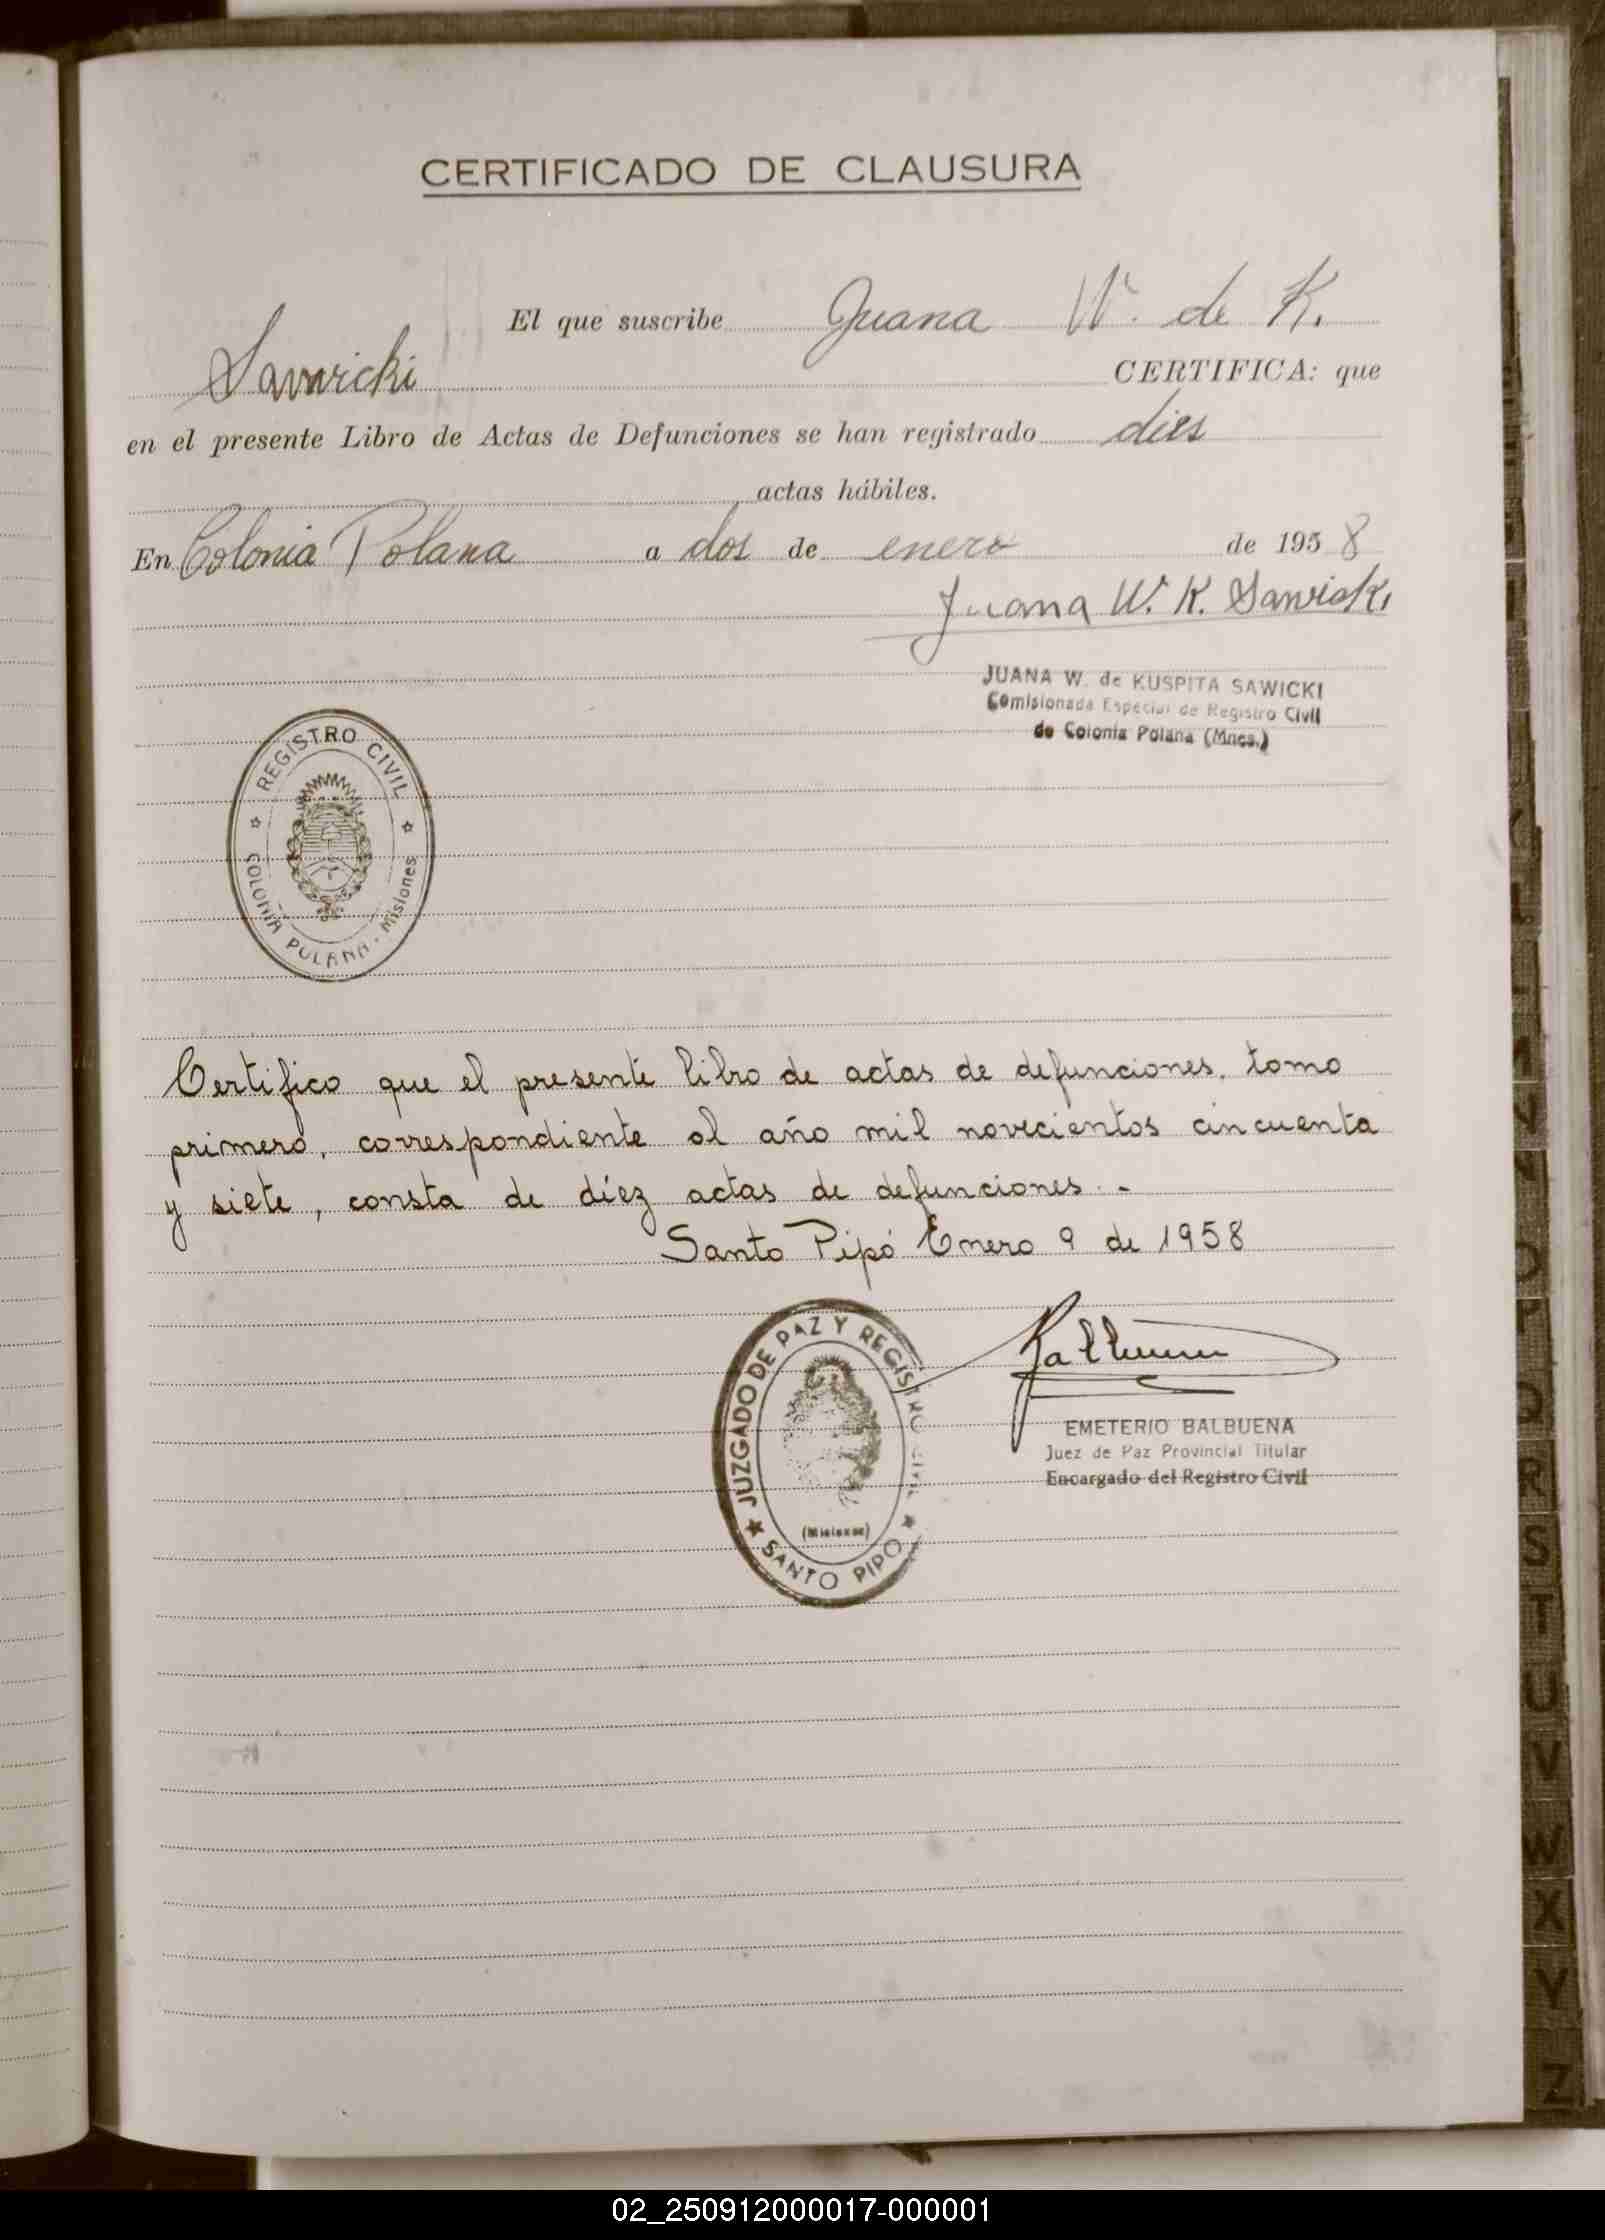 CERTIFICADO DE CLAUSURA
El que suscribe Juana W. de K.
Sawicki CERTIFICA: que
en el presente Libro de Actas de Defunciones se han registrado dies
actas hábiles.
En Colonia Polana a dos de enero de 1958
Juana W. K. Sawicki
JUANA W. de KUSPITA SAWICKI
Comisionada Especial de Registro Civil
de Colonia Polana (Mnes.)
REGISTRO CIVIL
COLONIA POLANA - Misiones
Certifico que el presente libro de actas de defunciones, tomo
primero, correspondiente al año mil novecientos cincuenta
y siete, consta de díez actas de defunciones. -
Santo Pipó Enero 9 de 1958
JUZGADO DE PAZ Y REGISTRO CIVIL
(Misiones)
SANTO PIPO
EMETERIO BALBUENA
Juez de Paz Provincial Titular
Encargado del Registro Civil
L
M
N
O
P
Q
R
S
T
U
V
W
X
Y
Z
02_250912000017-000001